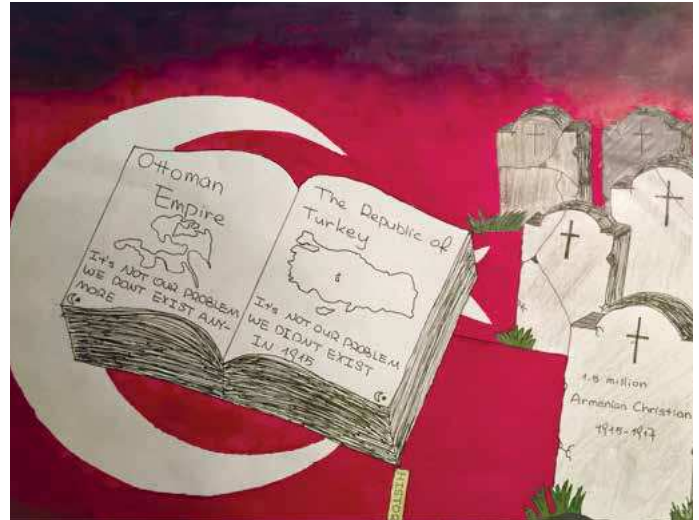 Ottoman
Empire
It's NOT OUR PROBLEM
WE DONT EXIST ANY-
MORE
The Republic of
Turkey
It's NOT OUR PROBLEM
WE DIDNT EXIST
IN 1915
1.5 million
Armenian Christian
1915-1917
HISTO